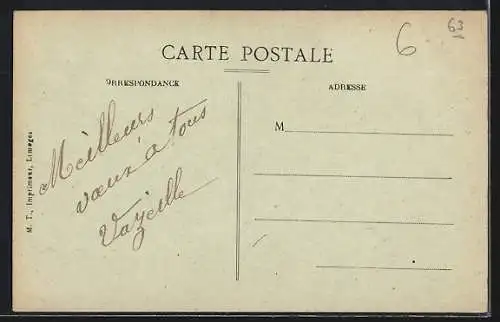 63
6
CARTE POSTALE
ORRESPONDANCE
ADRESSE
M
Meilleurs
vœux à tous
Vazeille
M. T., Imprimeur, Limoges